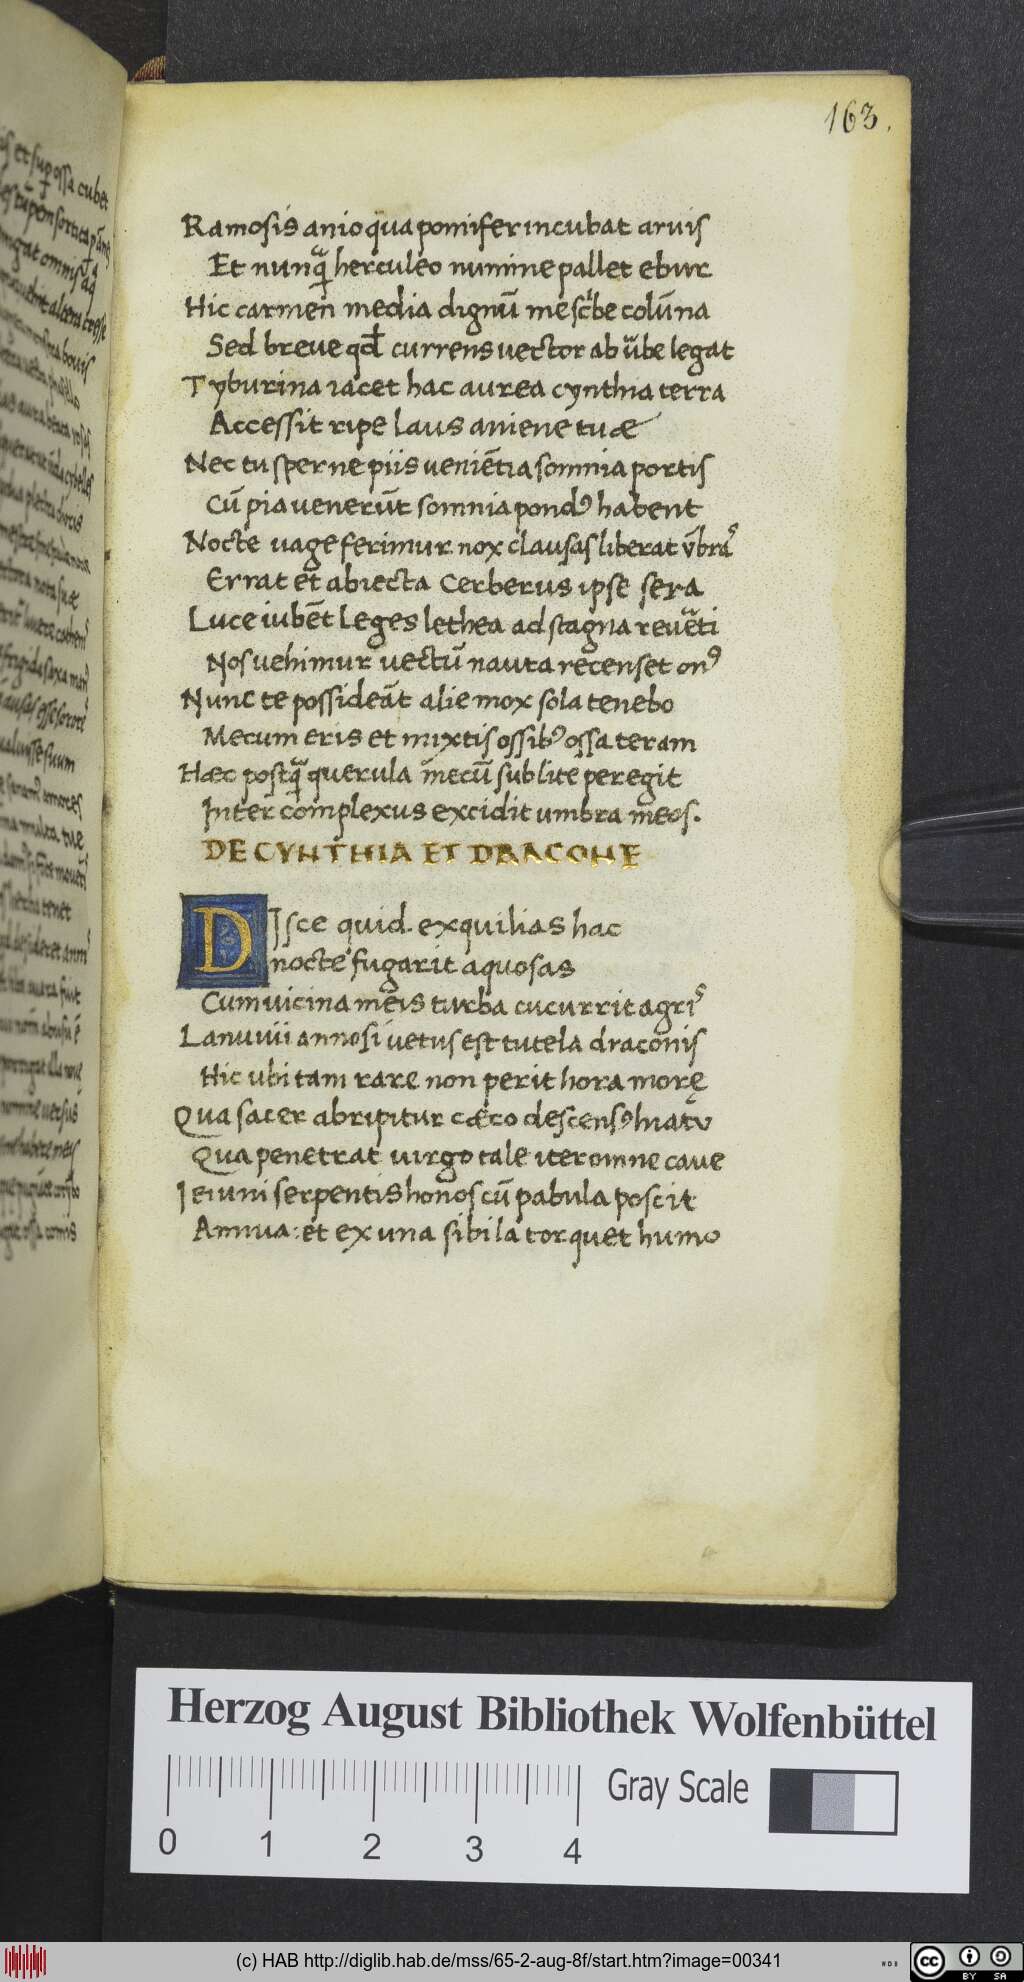 163.
Ramosis anio qua pomifer incubat aruis
Et nunꝙᷓ herculeo numine pallet ebur
Hic carmen media dignū me scͥbe colūna
Sed breue qd̄ currens uector ab ūbe legat
Tyburina iacet hac aurea cynthia terra
Accessit ripe laus aniene tuæ
Nec tu sperne piis ueniētia somnia portis
Cū pia venerūt somnia pondꝰ habent
Nocte uage ferimur nox clausas liberat v̄bras
Errat et abiecta Cerberus ipse sera
Luce iubēt leges lethea ad stagna reuerti
Nos uehimur uectū nauta recenset onꝰ
Nunc te possideāt alie mox sola tenebo
Mecum eris et mixtis ossibꝰ ossa teram
Hæc postꝙᷓ querula mecū sub lite peregit
Inter complexus excidit umbra meos.
DE CYNTHIA ET DRACONE
DIsce quid exquilias hac
nocte fugarit aquosas
Cum uicina meis turba cucurrit agris
Lanuuii annosi uetus est tutela draconis
Hic ubi tam rare non perit hora morę
Qua sacer abripitur cæco descensꝰ hiatu
Qua penetrat uirgo tale iter omne caue
Ieiuni serpentis honos cū pabula poscit
Annua: et ex una sibila torquet humo
Herzog August Bibliothek Wolfenbüttel
Gray Scale
0 1 2 3 4
(c) HAB http://diglib.hab.de/mss/65-2-aug-8f/start.htm?image=00341
cc BY SA